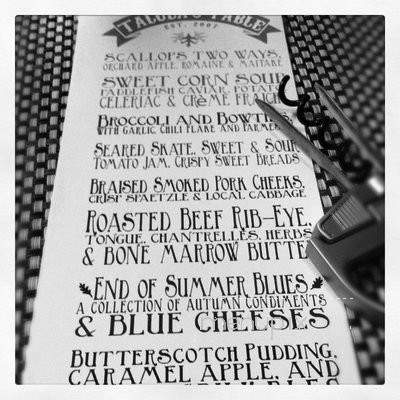 TALULA'S TABLE
EST. 2007
SCALLOPS TWO WAYS,
ORCHARD APPLE, ROMAINE & MAITAKE
SWEET CORN SOUP
PADDLEFISH CAVIAR, POTATO
CELERIAC & CRÈME FRAICHE
BROCCOLI AND BOWTIES,
WITH GARLIC CHILI FLAKE AND PARMESAN
SEARED SKATE, SWEET & SOUR
TOMATO JAM, CRISPY SWEET BREADS
BRAISED SMOKED PORK CHEEKS,
CRISP SPAETZLE & LOCAL CABBAGE
ROASTED BEEF RIB-EYE,
TONGUE, CHANTRELLES, HERBS
& BONE MARROW BUTTE
END OF SUMMER BLUES
A COLLECTION OF AUTUMN CONDIMENTS
& BLUE CHEESES
BUTTERSCOTCH PUDDING,
CARAMEL APPLE, AND